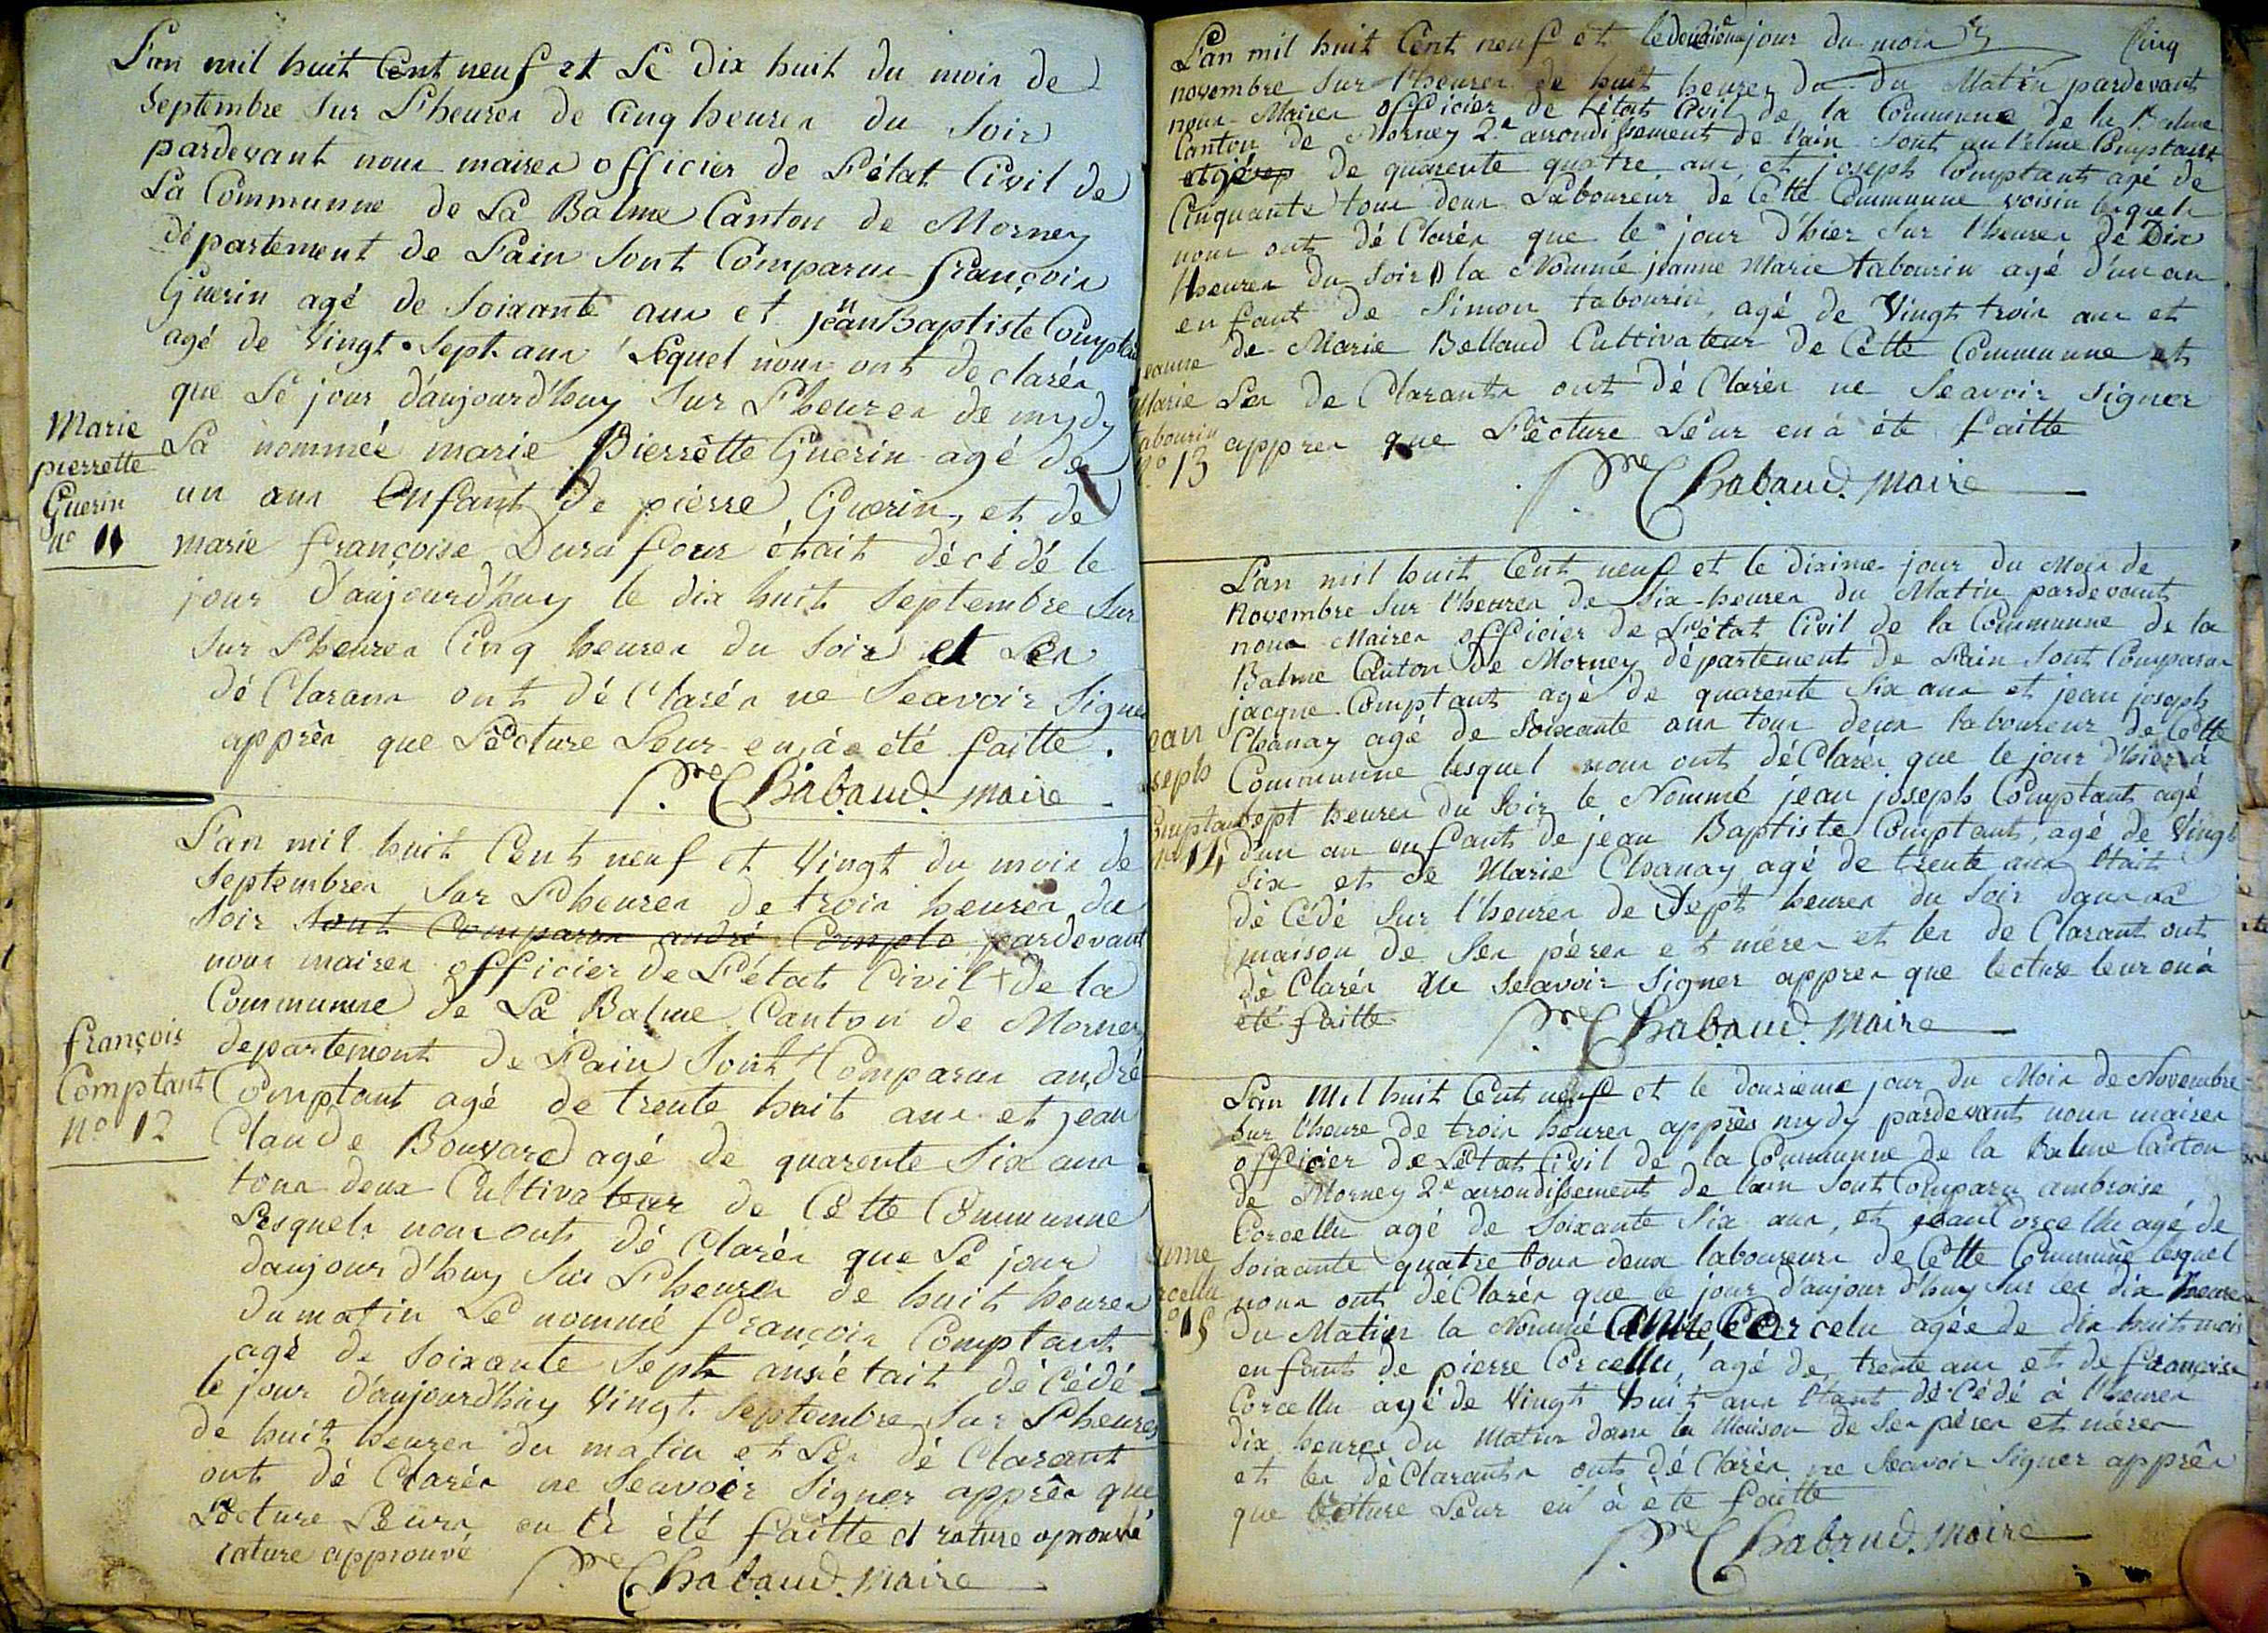 L'an mil huit Cent neuf et Le dix huit du mois de
Septembre Sur L'heures de Cinq heures du Soir
pardevant nous maires officier de L'état Civil de
La Communne de La Balme Canton de Morney
département de L'ain Sont Comparus françois
Guerin agé de Soixante ans et jean Baptiste
agé de Vingt Sept ans Lequel nous ont declarés
que Le jour d'aujourd'huy Sur L'heures de mydy
La nommée marie Pierrette Guerin agé de
un ans Enfant de pierre Guerin, et de
marie françoise Durafour était décédé le
jour d'aujourd'huy le dix huit Septembre Sur
Sur L'heures Cinq heures du Soir et Les
dé Clarans ont dé Clarés ne Seavoir Signer
apprês que Lecture Leur en à été faitte.
Marie
pierrette
Guerin
n° 11
Pre Chabaud. maire
L'an mil huit Cent neuf et Vingt du mois de
Septembres Sur L'heures de trois heures du
Soir Sont Comparus andré Compta pardevant
nous maires officier de L'état Civil + de la
Communne de La Balme Canton de Morney
departement de L'ain Sont Comparus andré
Comptant agé de trente huit ans et jean
Claude Bouvard agé de quarente Six ans
tous deux Cultivateur de Cette Communne
Lesquels nous ont dé Clarés que Le jour
daujourd'huy Sur L'heures de huit heures
du matin Le nommé françois Comptant
agé de Soixante Sept ans était dé Cédé
le jour d'aujourd'huy Vingt Septembre Sur L'heures
de huit heures du matin et Les dé Clarant
ont dé Clarés ne Seavoir Signer apprês que
Lecture Leurs en à été faitte et rature aprouvé
rature approuvé
françois
Comptant
n° 12
Pre Chabaud. maire
Cinq
L'an mil huit Cent neuf et le jour du mois
novembre Sur l'heures de huit heures du du Matin pardevant
nous Maires officier de l'état Civil de la Communne de la Balme
Canton de Morney 2e arrondissement de l'ain Sont Comptant
de quarente quatre ans et joseph Comptant agé de
Cinquante tous deux Laboureur de Cette Communne voisin lequels
nous ont dé Clarés que le jour d'hier Sur l'heures de Dix
Heures du Soir la Nommé jeanne Marie tabourin agé d'un an
enfant de Simon tabourin, agé de Vingt trois ans et
de Marie Belland Cultivateur de Cette Communne et
Les de Clarants ont dé Clarés ne Seavoir Signer
appres que Lecture Leur en à été faitte
eanne
Marie
tabourin
n° 13
Pre Chabaud. maire
L'an mil huit Cent neuf et le dixime jour du Mois de
Novembre Sur l'heures de Six heures du Matin pardevant
nous Maires officier de L'état Civil de la Communne de la
Balme Canton de Morney département de L'ain Sont Comparus
jacque Comptant agé de quarente Six ans et jean joseph
Chanay agé de Soixante ans tous deux laboureur de Cette
Communne lesquel nous ont dé Clarés que le jour d'hier à
Sept heures du Soir le Nommé jean joseph Comptant agé
d'un an enfants de jean Baptiste Comptant, agé de Vingt
Six et de Marie Chanay agé de trente ans était
dé Cédé Sur l'heures de Sept heures du Soir dans
maison de Ses péres et méres et les de Clarant ont
dé Clarés ne Seavoir Signer appres que lecture leur en à
été faitte
ean
seph
omptant
n° 14
Pre Chabaud. maire
L'an Mil huit Cent neuf et le douzieme jour du Mois de Novembre
Sur l'heure de trois heures apprês mydy pardevant nous maires
officier de L'état Civil de la Communne de la Balme Canton
de Morney 2e arrondissement de lain Sont Comparu ambroise
Corcellu agé de Soixante Six ans, et jean Corcellu agé de
Soixante quatre tous deux laboureurs de Cette Communne lesquel
nous ont dé Clarés que le jour d'aujourd'huy Sur les dix heures
du Matin la Nommé Corcelu agée de dix huit mois
enfant de pierre Corcellu, agé de trente ans et de françoise
Corcellu agé de Vingt huit ans étant dé Cédé à l'heures
dix heures du Matin dans la Maison de Ses péres et méres
et les dé Clarants ont dé Clarés ne Seavoir Signer apprês
que lecture Leur en à été faitte
rcellu
n° 15
Pre Chabaud. maire